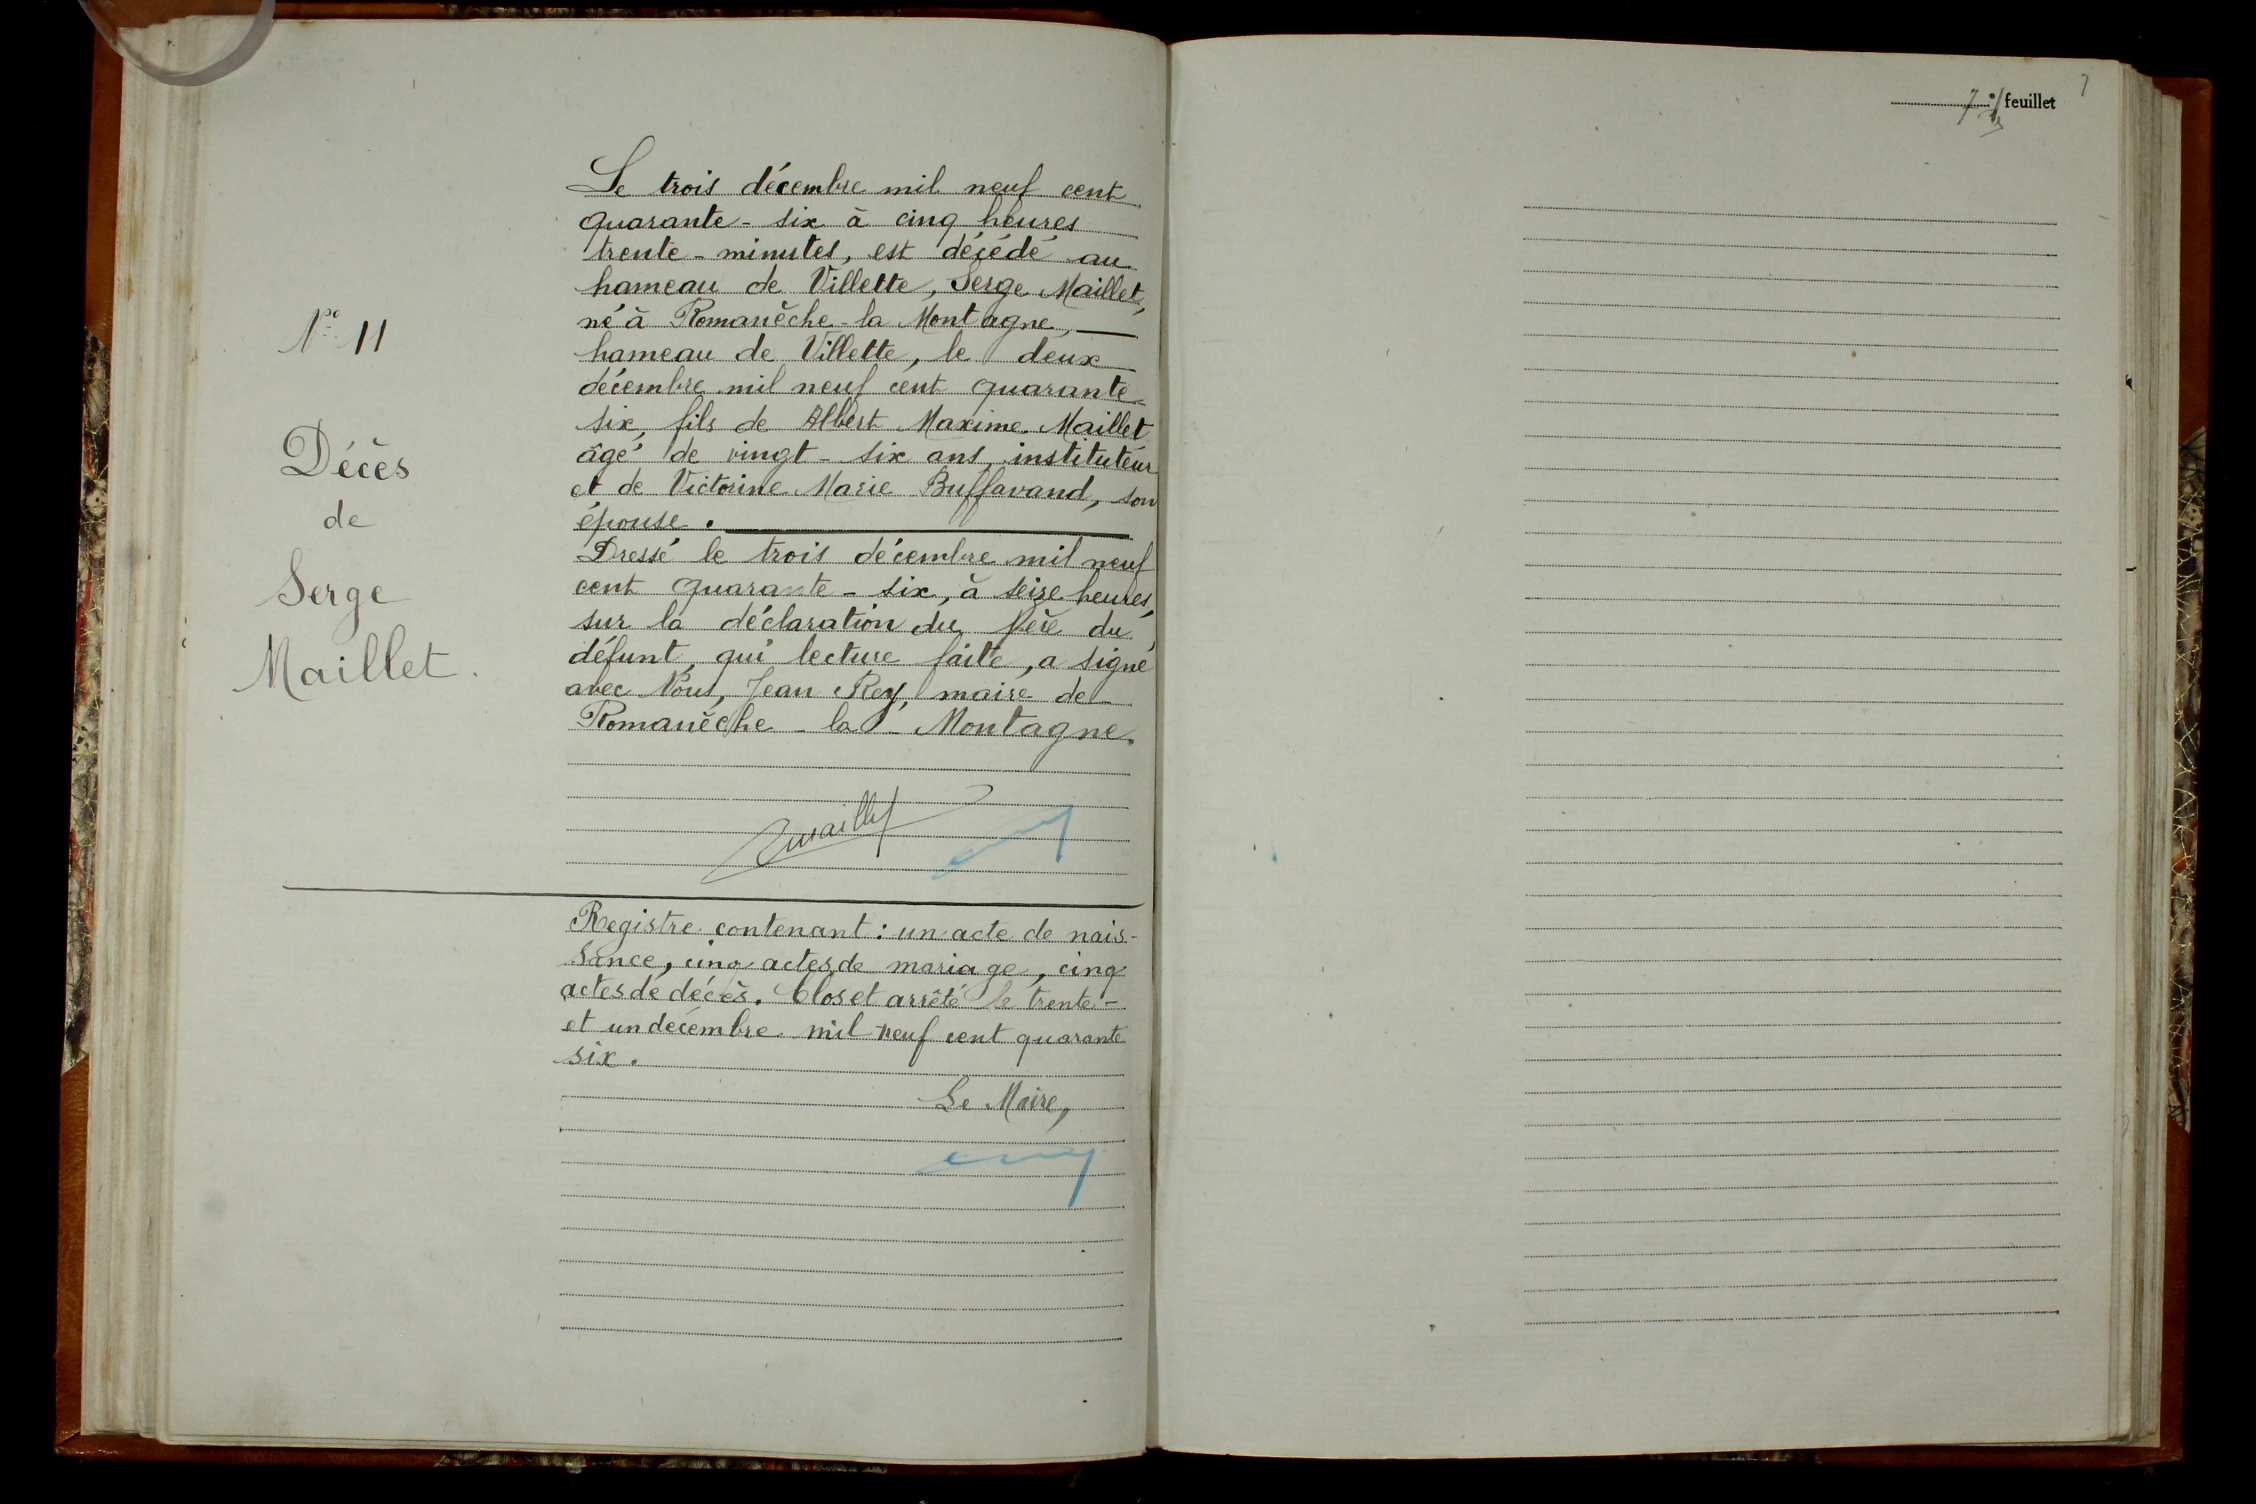 Nº 11
Décès
de
Serge
Maillet.
Le trois décembre mil neuf cent
quarante-six à cinq heures
trente-minutes, est décédé au
hameau de Villette, Serge Maillet,
né à Romanèche-la Montagne,
hameau de Villette, le deux
décembre mil neuf cent quarante-
six, fils de Albert Maxime Maillet
âgé de vingt-six ans, instituteur
et de Victorine Marie Buffavand, son
épouse.
Dressé le trois décembre mil neuf
cent quarante-six, à seize heures,
sur la déclaration du père du
défunt, qui lecture faite, a signé
avec Nous, Jean Rey, maire de
Romanèche-la-Montagne.
Maillet
Registre contenant : un acte de nais-
sance, cinq actes de mariage, cinq
actes de décès. Clos et arrêté le trente-
et un décembre mil neuf cent quarante
six.
Le Maire,
7 feuillet
7